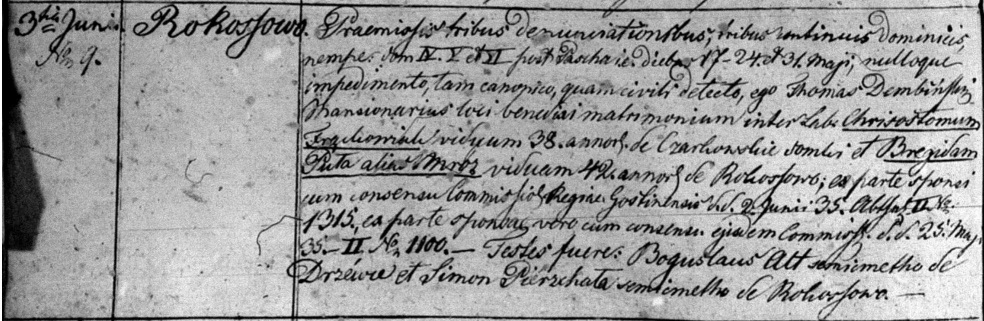 3tia Junii Rokossowo. Praemissis tribus denunciationibus, tribus continuis dominicis,
No 9. nempe: dom IV. V et VI post Pascha ie: diebus 17-24. et 31. Maji, nulloque
impedimento, tam canonico, quam civili detecto, ego Thomas
Mansionarius loci benedixi matrimonium inter Lab: Chrisostomum
viduum 38. annor. de et Bregidam
Puta alias Mroz viduam 42. annor. de Rokossowo; ex parte sponsi
cum consensu Commissio Regiae Gostinensis d.d. 2. Junii 35. II No.
1315, ex parte sponsae vero cum consensu ejusdem Commiss. d.d. 25. Maji
35. II No. 1100. — Testes fuere: Boguslaus Alt semicmetho de
Drzewce et Simon Pierzchata semicmetho de Rokossowo. —